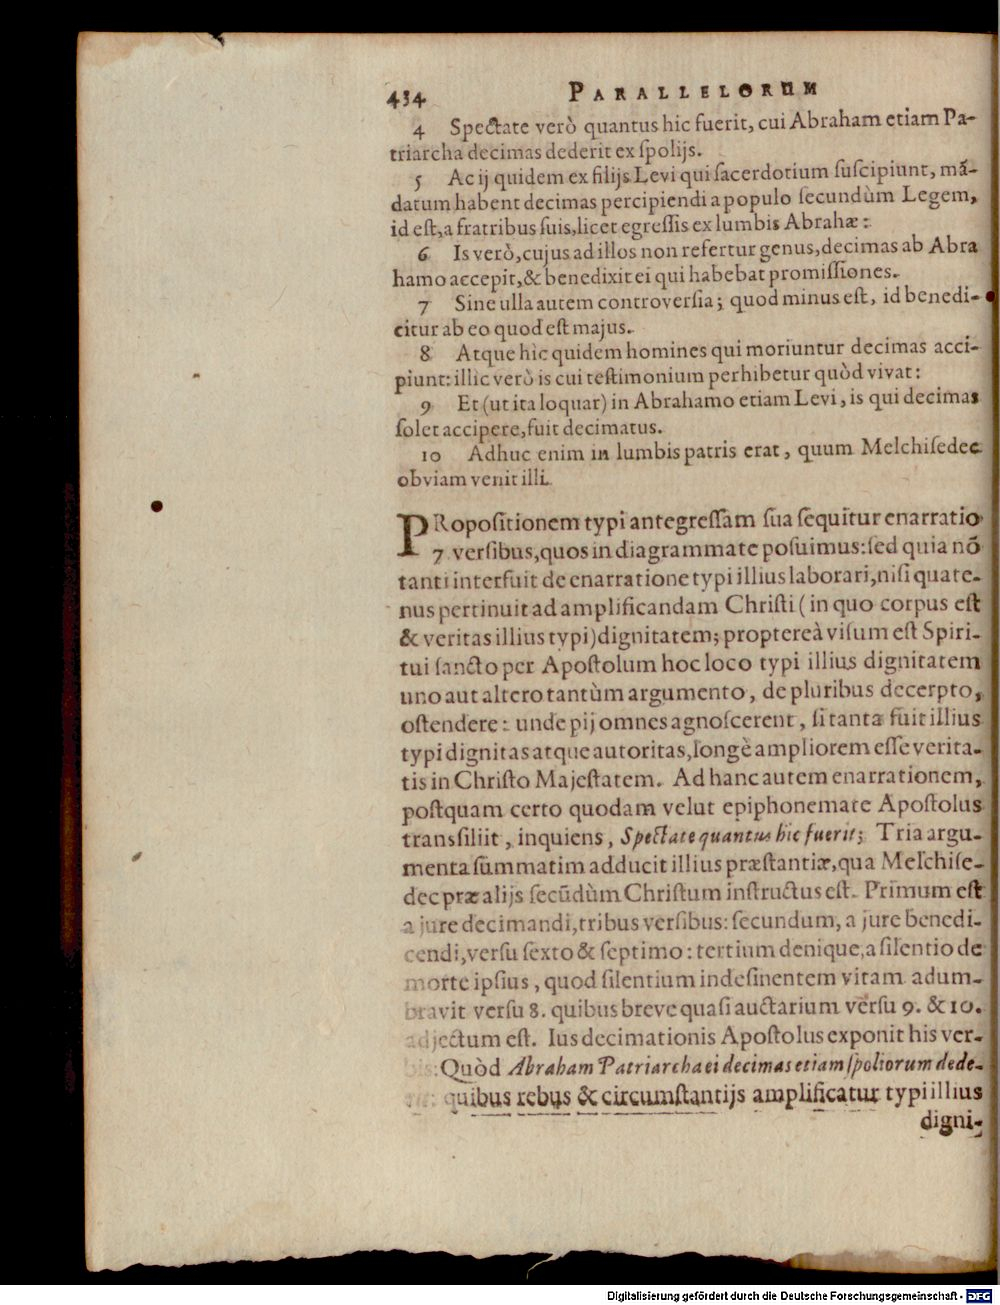 434 PARALLELORUM
4 Spectate verò quantus hic fuerit, cui Abraham etiam Pa-
triarcha decimas dederit ex ſpolijs.
5 Ac ij quidem ex filijs Levi qui ſacerdotium ſuſcipiunt, mã-
datum habent decimas percipiendi a populo ſecundùm Legem,
id eſt, a fratribus ſuis, licet egreſſis ex lumbis Abrahæ:
6 Is verò, cujus ad illos non refertur genus, decimas ab Abra
hamo accepit, & benedixit ei qui habebat promiſſiones.
7 Sine ulla autem controverſia; quod minus eſt, id benedi-
citur ab eo quod eſt majus.
8 Atque hic quidem homines qui moriuntur decimas acci-
piunt: illic verò is cui teſtimonium perhibetur quòd vivat:
9 Et (ut ita loquar) in Abrahamo etiam Levi, is qui decimas
ſolet accipere, fuit decimatus.
10 Adhuc enim in lumbis patris erat, quum Melchiſedec
obviam venit illi.
PRopoſitionem typi antegreſſam ſua ſequitur enarratio
7 verſibus, quos in diagrammate poſuimus: ſed quia nõ
tanti interfuit de enarratione typi illius laborari, niſi quate-
nus pertinuit ad amplificandam Chriſti (in quo corpus eſt
& veritas illius typi) dignitatem; proptereà viſum eſt Spiri-
tui ſancto per Apoſtolum hoc loco typi illius dignitatem
uno aut altero tantùm argumento, de pluribus decerpto,
oſtendere: unde pij omnes agnoſcerent, ſi tanta fuit illius
typi dignitas atque autoritas, longè ampliorem eſſe verita-
tis in Chriſto Majeſtatem. Ad hanc autem enarrationem,
poſtquam certo quodam velut epiphonemate Apoſtolus
transſiliit, inquiens, Spectate quantus hic fuerit; Tria argu-
menta ſummatim adducit illius præſtantiæ, qua Melchiſe-
dec præ alijs ſecũdùm Chriſtum inſtructus eſt. Primum eſt
a jure decimandi, tribus verſibus: ſecundum, a jure benedi-
cendi, verſu ſexto & ſeptimo: tertium denique, a ſilentio de
morte ipſius, quod ſilentium indeſinentem vitam adum-
bravit verſu 8. quibus breve quaſi auctarium verſu 9. & 10.
adjectum eſt. Ius decimationis Apoſtolus exponit his ver-
bis: Quòd Abraham Patriarcha ei decimas etiam ſpoliorum dede-
quibus rebus & circumſtantijs amplificatur typi illius
digni-
Digitalisierung gefördert durch die Deutsche Forschungsgemeinschaft - DFG